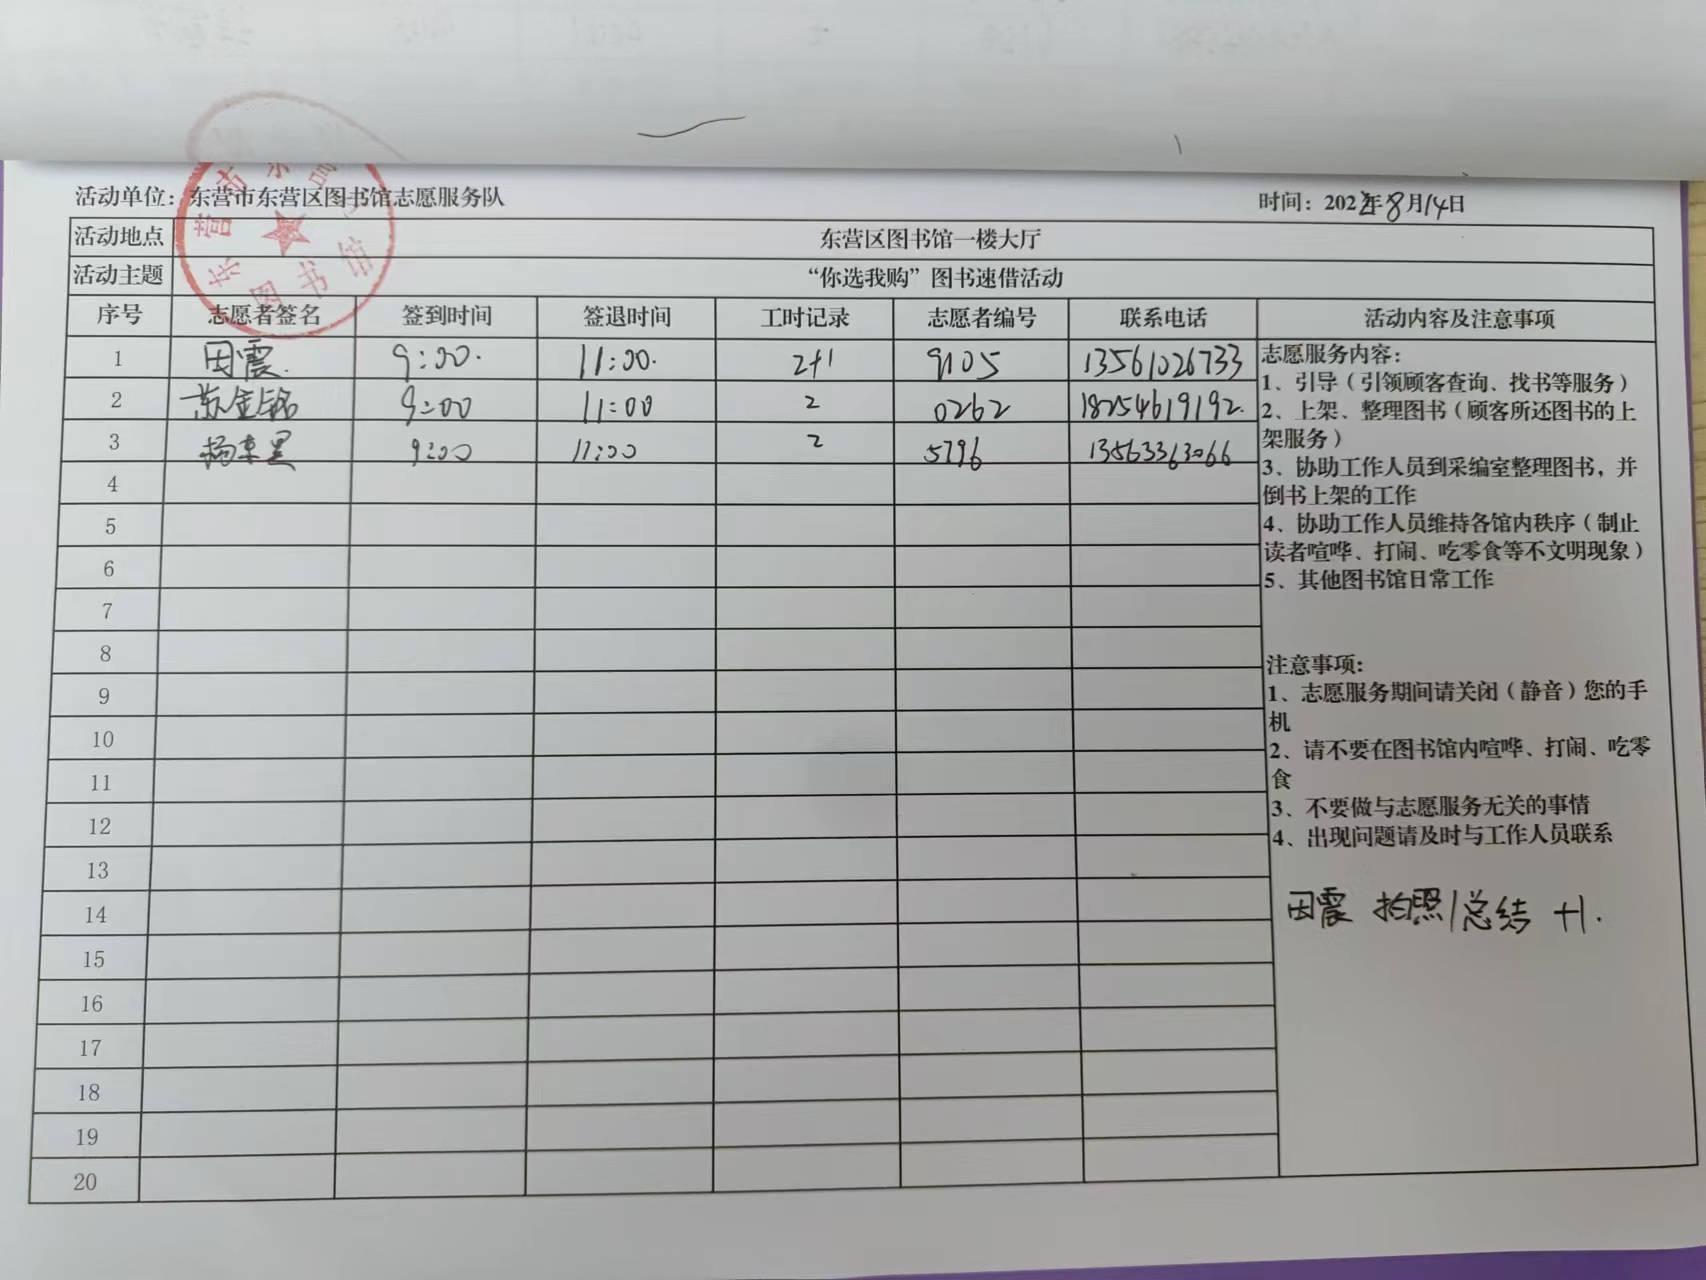 活动单位：东营市东营区图书馆志愿服务队 时间：2022年8月14日
活动地点 东营区图书馆一楼大厅
活动主题 “你选我购”图书速借活动
序号 志愿者签名 签到时间 签退时间 工时记录 志愿者编号 联系电话 活动内容及注意事项
1 田震 9:00 11:00 2+1 9105 13561026733
2 苏金铭 9:00 11:00 2 0262 18254619192
3 11:00 9:00 2 5796 13563363066
4
5
6
7
8
9
10
11
12
13
14
15
16
17
18
19
20
志愿服务内容：
1、引导（引领顾客查询、找书等服务）
2、上架、整理图书（顾客所还图书的上
架服务）
3、协助工作人员到采编室整理图书，并
倒书上架的工作
4、协助工作人员维持各馆内秩序（制止
读者喧哗、打闹、吃零食等不文明现象）
5、其他图书馆日常工作
注意事项：
1、志愿服务期间请关闭（静音）您的手
机
2、请不要在图书馆内喧哗、打闹、吃零
食
3、不要做与志愿服务无关的事情
4、出现问题请及时与工作人员联系
田震 拍照/总结 +1.
东营市东营区图书馆